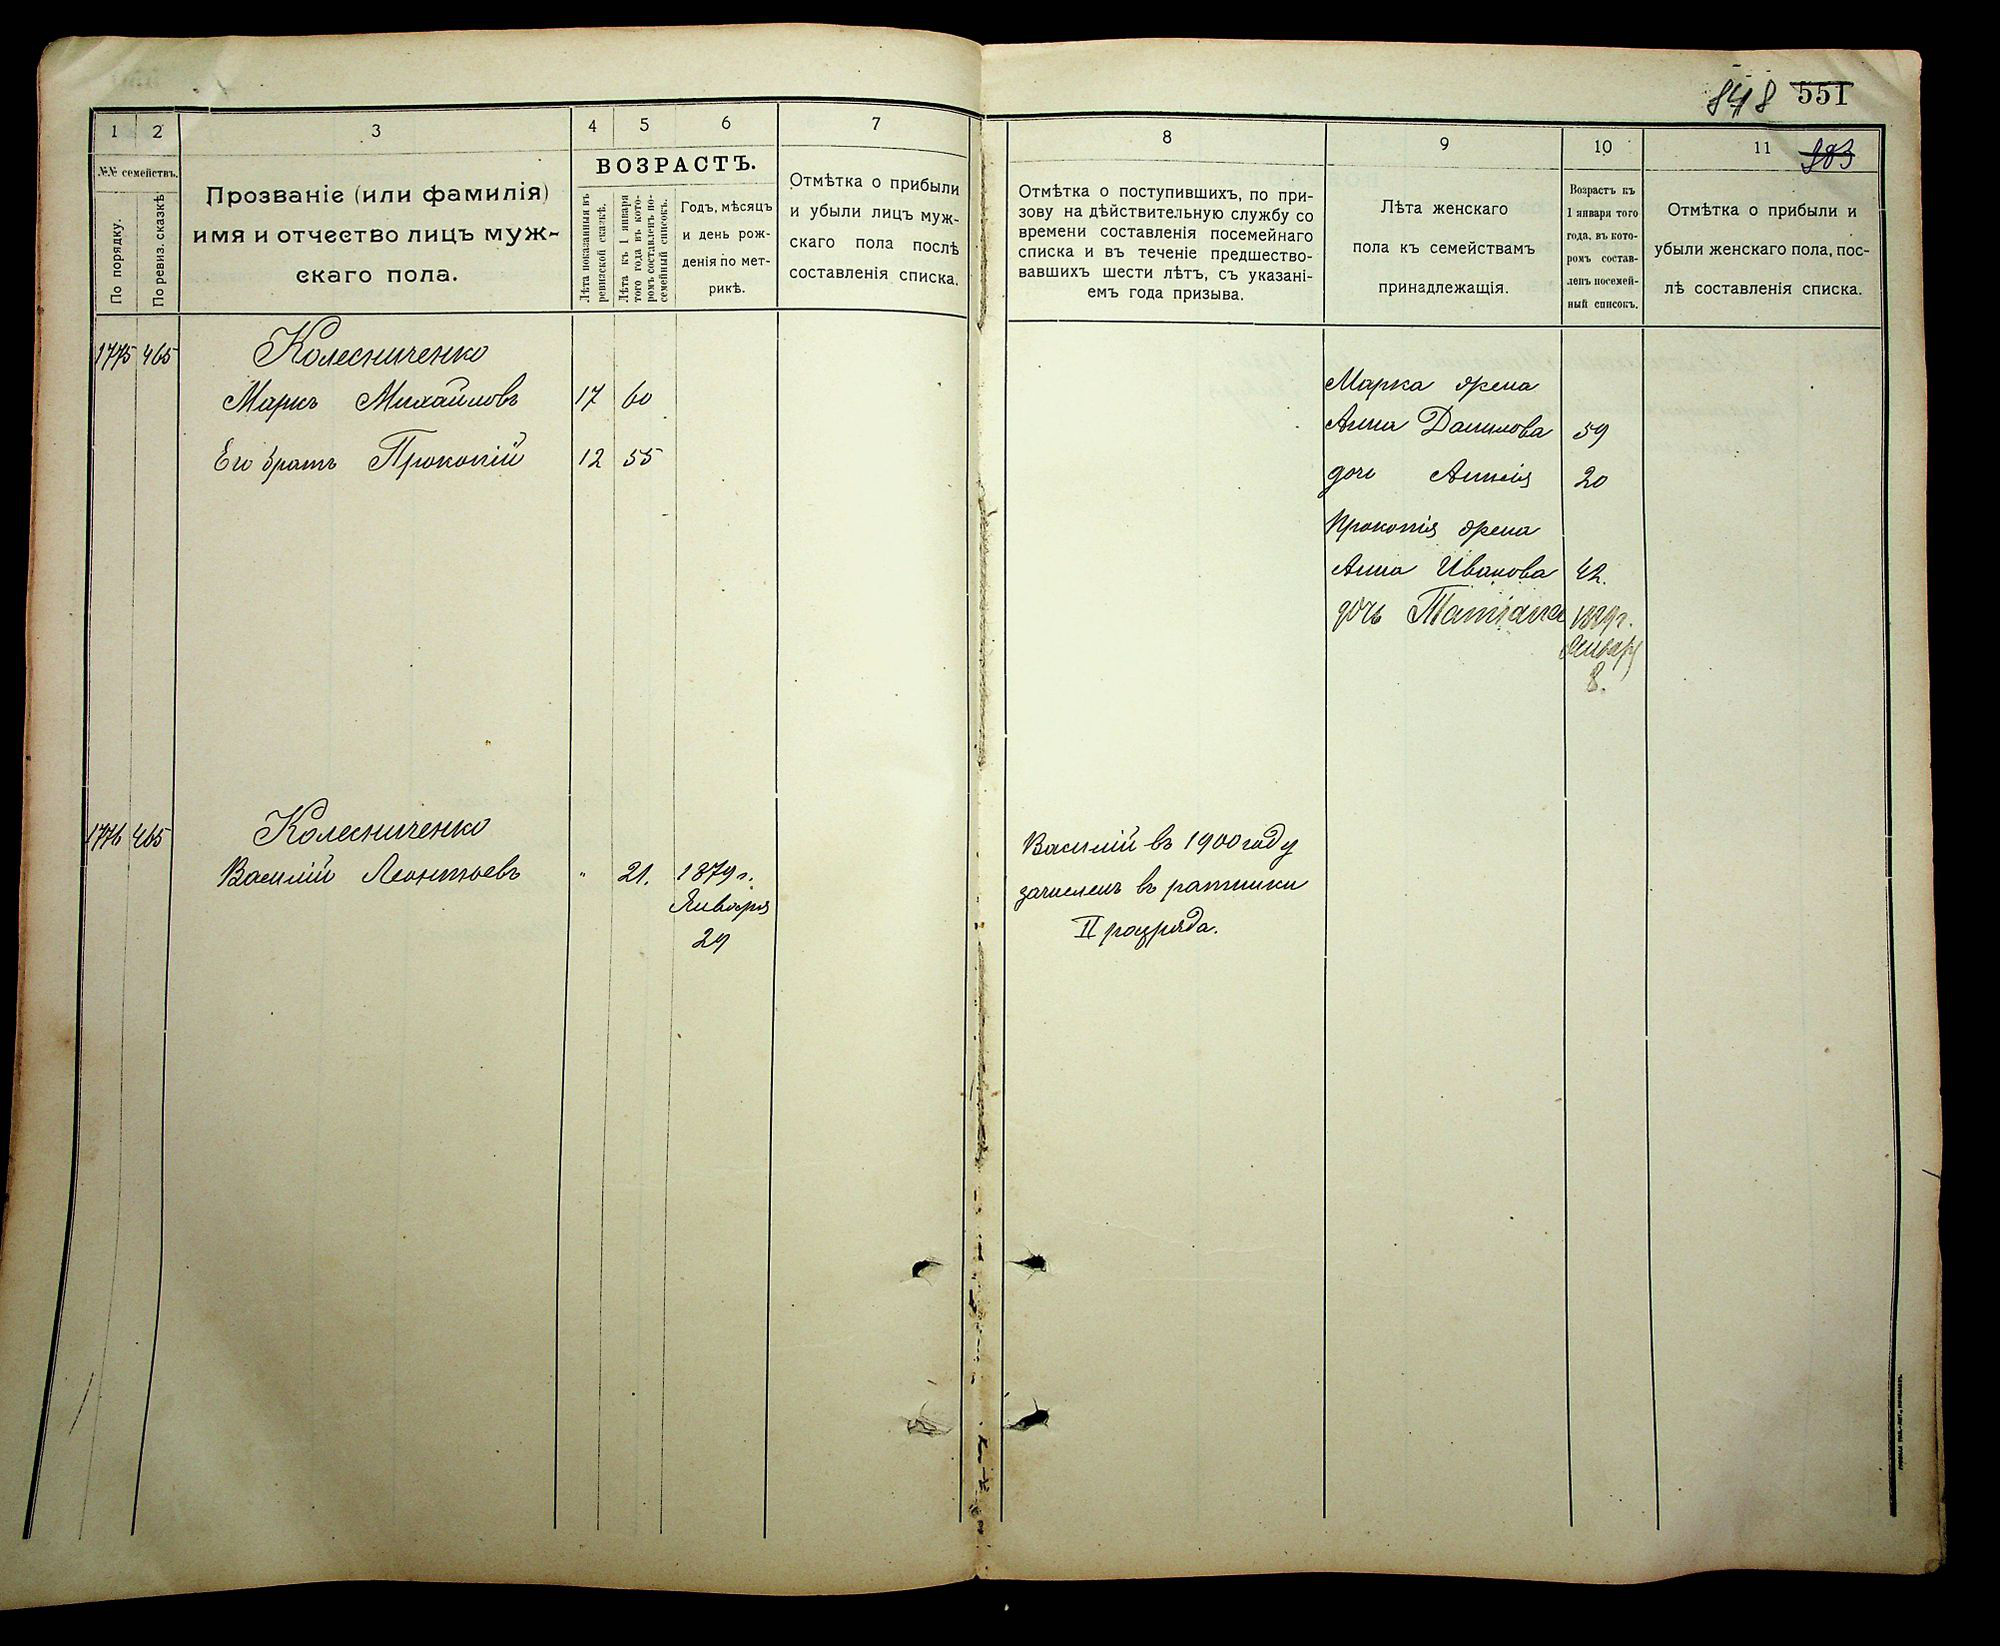 848 551
903
1 2 3 4 5 6 7
№№ семействъ.
По порядку.
По ревиз. сказкѣ
Прозваніе (или фамилія)
имя и отчество лицъ муж-
скаго пола.
ВОЗРАСТЪ.
Лѣта показанныя въ
ревизской сказкѣ.
Лѣта къ 1 января
того года въ кото-
ромъ составленъ по-
семейный списокъ.
Годъ, мѣсяцъ
и день рож-
денія по мет-
рикѣ.
Отмѣтка о прибыли
и убыли лицъ муж-
скаго пола послѣ
составленія списка.
8 9 10 11
Отмѣтка о поступившихъ, по при-
зову на дѣйствительную службу со
времени составленія посемейнаго
списка и въ теченіе предшество-
вавшихъ шести лѣтъ, съ указані-
емъ года призыва.
Лѣта женскаго
пола къ семействамъ
принадлежащія.
Возрастъ къ
1 января того
года, въ кото-
ромъ состав-
ленъ посемей-
ный списокъ.
Отмѣтка о прибыли и
убыли женскаго пола, пос-
лѣ составленія списка.
1775 465 Колесниченко
Маркъ Михайловъ 17 60
Его братъ Прокопій 12 55
Марка жена
Анна Данилова 59
дочь Аннія 20
Прокопія жена
Анна Иванова 42.
дочь Татіана 1889 г.
Январ
8.
1776 465 Колесниченко
Василій Леонтьевъ " 21. 1879 г.
Января
29
Василій въ 1900 году
зачисленъ въ ратники
II разряда.